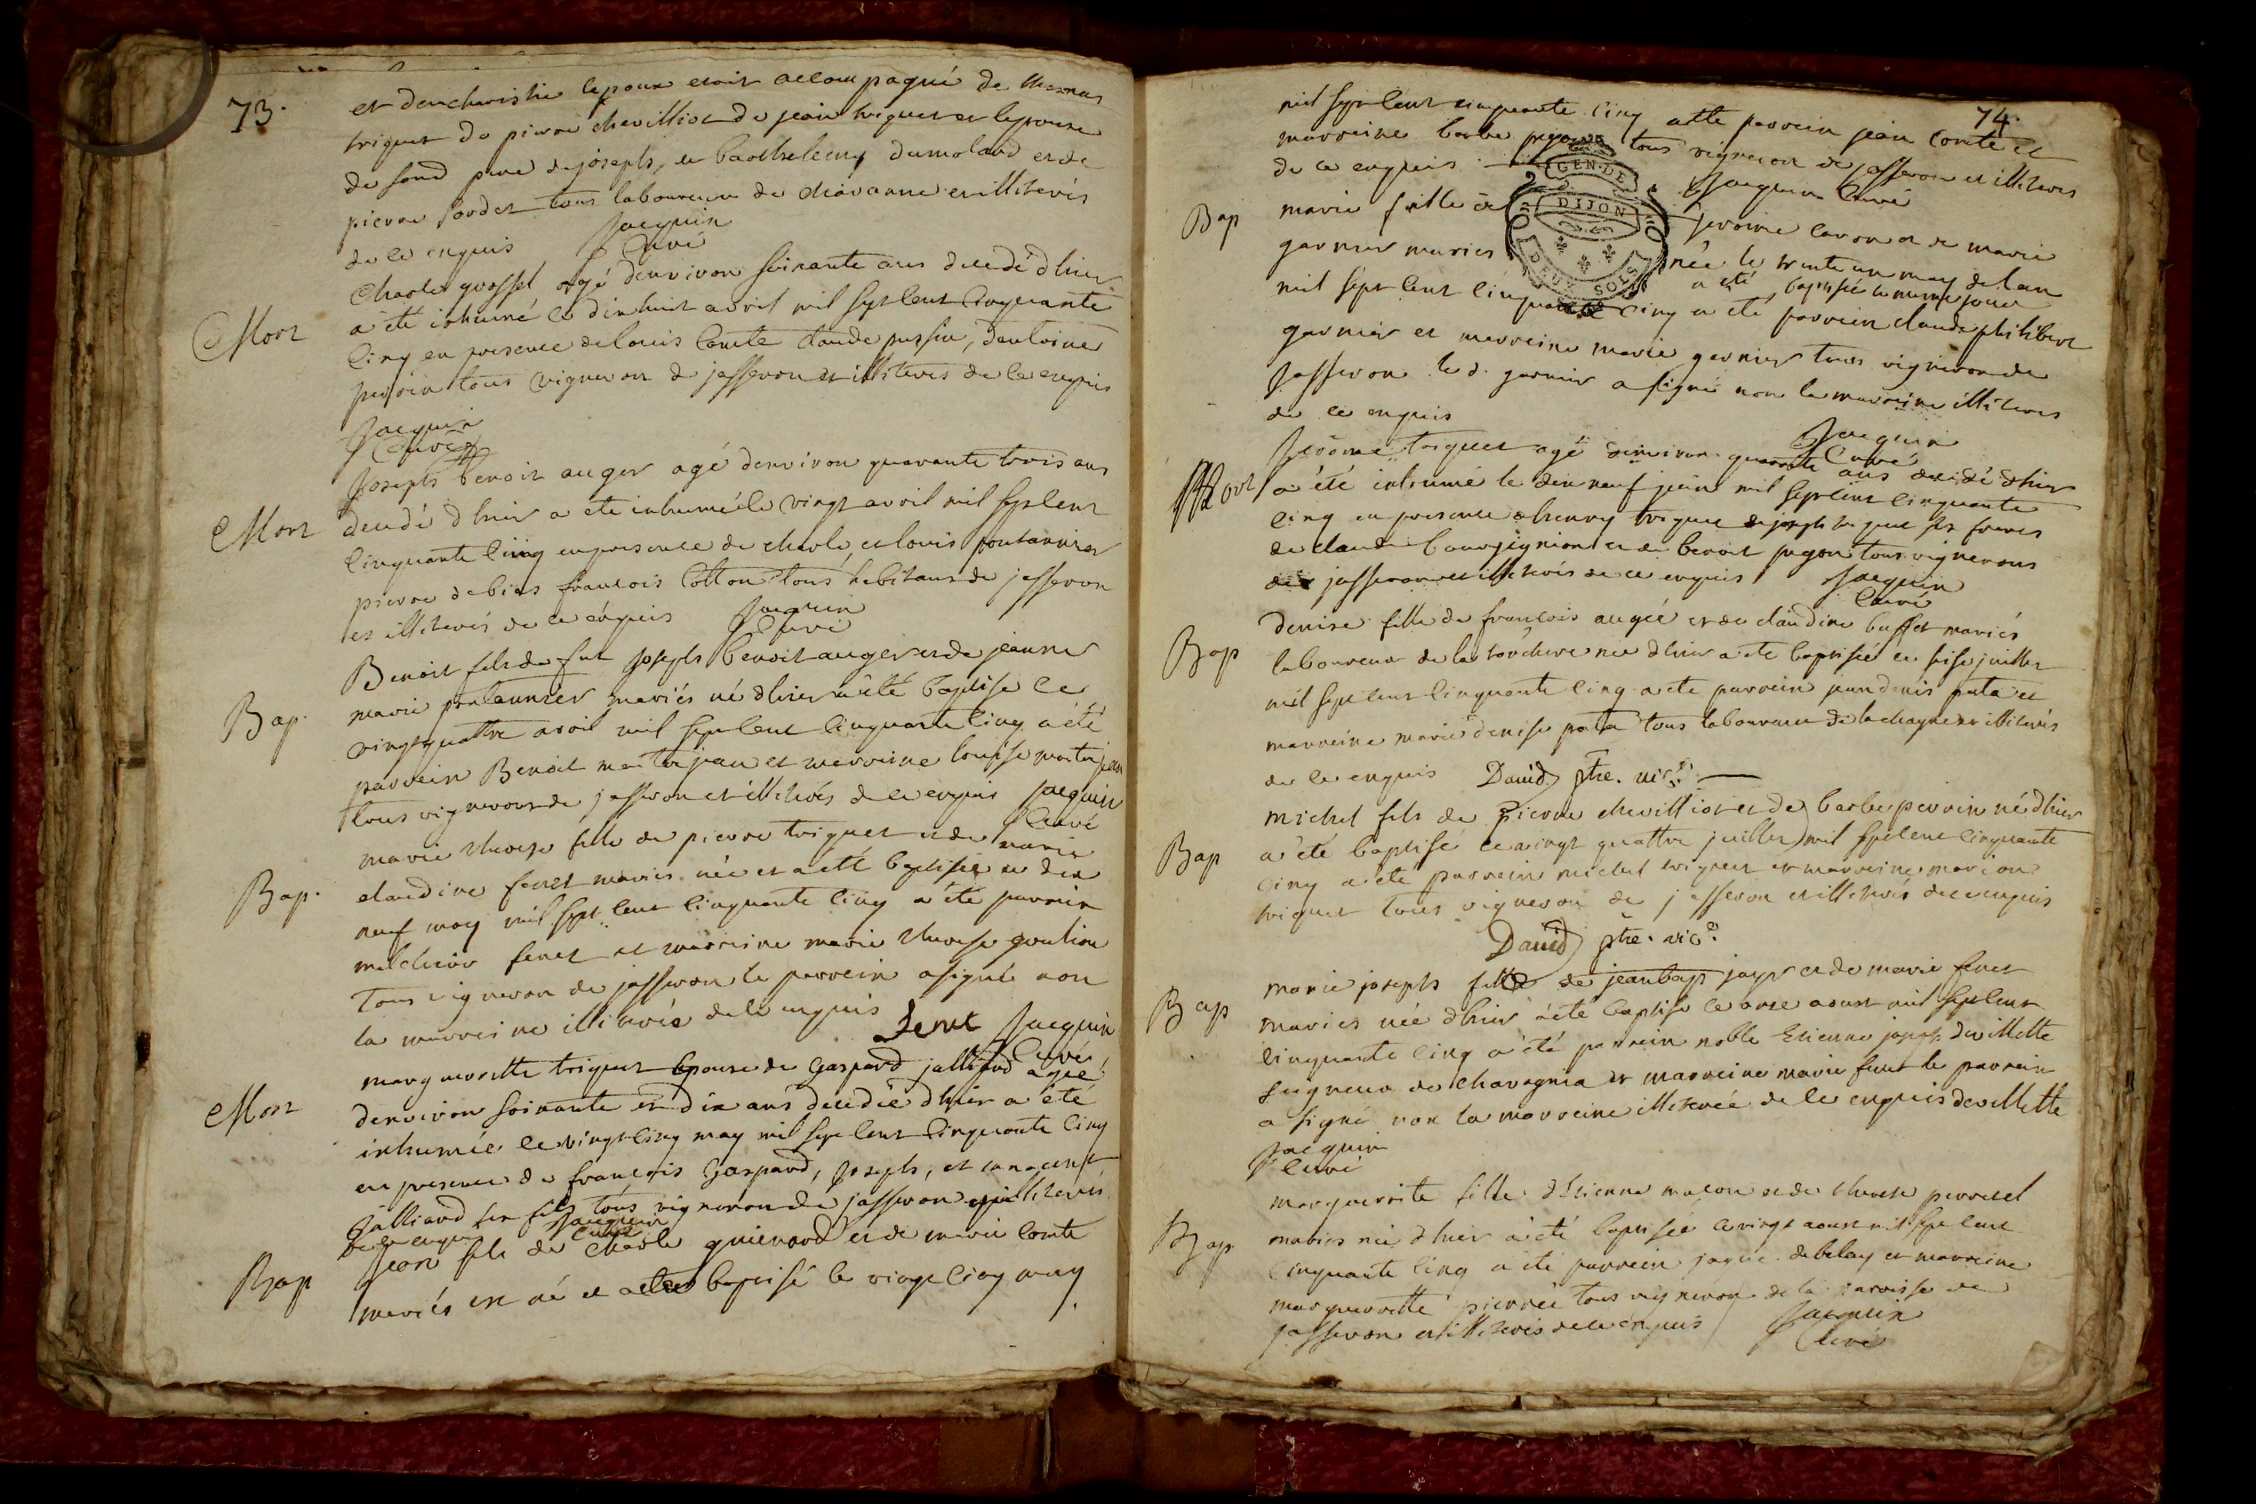 73.
et deucharistie lepoux etoit accompagné de thomas
triquet de pierre chevilliot de jean triquet et lepouse
de fond pere de joseph, et barthelemy dumoland et de
pierre tous laboureurs de et illiterés
de ce enquis Jacquin
Curé
Mort
Charle grossel agé denviron soixante ans decedé dhier
a été inhumé le dixhuit avril mil sept cent cinquante
cinq en presence de louis Comte claude
tous vigneron de jasseron et illiterés de ce enquis
Jacquin
Curé
Mort
Joseph benoit auger agé denviron quarante trois ans
decedé dhier a eté inhumé le vingt avril mil sept cent
cinquante cinq en presence de charle et louis pontannier
pierre debias francois Cotton tous habitans de jasseron
et illiterés de ce enquis Jacquin
Curé
Bap.
Benoit fils de fut Joseph benoit auger et de jeanne
marie pontannier mariés né dhier a été baptisé le
vingtquattre avril mil sept cent cinquante cinq a été
parrein Benoit maitrejean et marreine louise maitrejean
tous vignerons de jasseron et illiterés de ce enquis Jacquin
Curé
Bap.
marie therese fille de pierre triquet et de marie
claudine feret mariés née et a eté baptisée le dix
neuf may mil sept cent cinquante cinq a été parrein
melchior feret et marreine marie therese
tous vigneron de jasseron le parrein a signé non
la marreine illiterée de ce enquis feret Jacquin
Curé
Mort
marguerite triquet epouse de gaspard jalliard agée
denviron soixante et dix ans decedée dhier a été
inhumée le vingt cinq may mil sept cent cinquante cinq
en presence de francois Gaspard, Joseph, et
Jalliard ses fils tous vigneron de jasseron et illiterés
de ce enquis Jacquin
Curé
Bap
Jean fils de Charle guienard et de marie Comte
mariés est né et a été baptisé le vingt cinq may
74.
mil sept cent cinquante cinq a été parrein jean Comte et
marreine barbe pugon tous vigneron de jasseron et illiterés
de ce enquis. Jacquin Curé
GEN. DE
DIJON
DEUX SOLS
Bap
marie fille de Jeroime et de marie
garnier mariés née le trente un may de lan
a été baptisée le meme jour
mil sept cent cinquante cinq a été parrein claude philibert
garnier et marreine marie garnier tous vigneron de
Jasseron le d. garnier a signé non la marreine illiteres
de ce enquis Jacquin
Curé
Mort
Jerôme triquet agé denviron quarante ans decedé dhier
a été inhumé le dix neuf juin mil sept cent cinquante
cinq en presence dhenry triquet de joseph triquet ses freres
de claude bourgignion et de benoit pugon tous vignerons
de jasseron et illiterés de ce enquis Jacquin
Curé
Bap
denise fille de francois augié et de claudine buffet mariés
laboureur de la née dhier a eté baptisée ce seise juillet
mil sept cent cinquante cinq a eté parrein jean denis puta et
marreine marie denise puta tous laboureurs de et illiterés
de ce enquis David ptre. vic.
Bap
michel fils de Pierre chevilliot et de barbe perrin né dhier
a été baptisé ce vingt quattre juillet mil sept cent cinquante
cinq a eté parrein michel triquet et marreine marion
triquet tous vigneron de jasseron et illiterés de ce enquis
David ptre. vic.
Bap
marie joseph fille de jean bap jayr et de marie feret
mariés née dhier a été baptisé ce onse aoust mil sept cent
cinquante cinq a été parrein noble Etienne joseph devillette
seigneur de chavagnia et marreine marie feret le parrein
a signé non la marreine illiterée de ce enquis devillette
Jacquin
Curé
Bap
marguerite fille dEtienne maçon et de therese perretel
mariés née dhier a été baptisée le vingt aoust mil sept cent
cinquante cinq a été parrein jaque debelay et marreine
marguerite tous vigneron de la paroisse de
jasseron et illiterés de ce enquis Jacquin
Curé